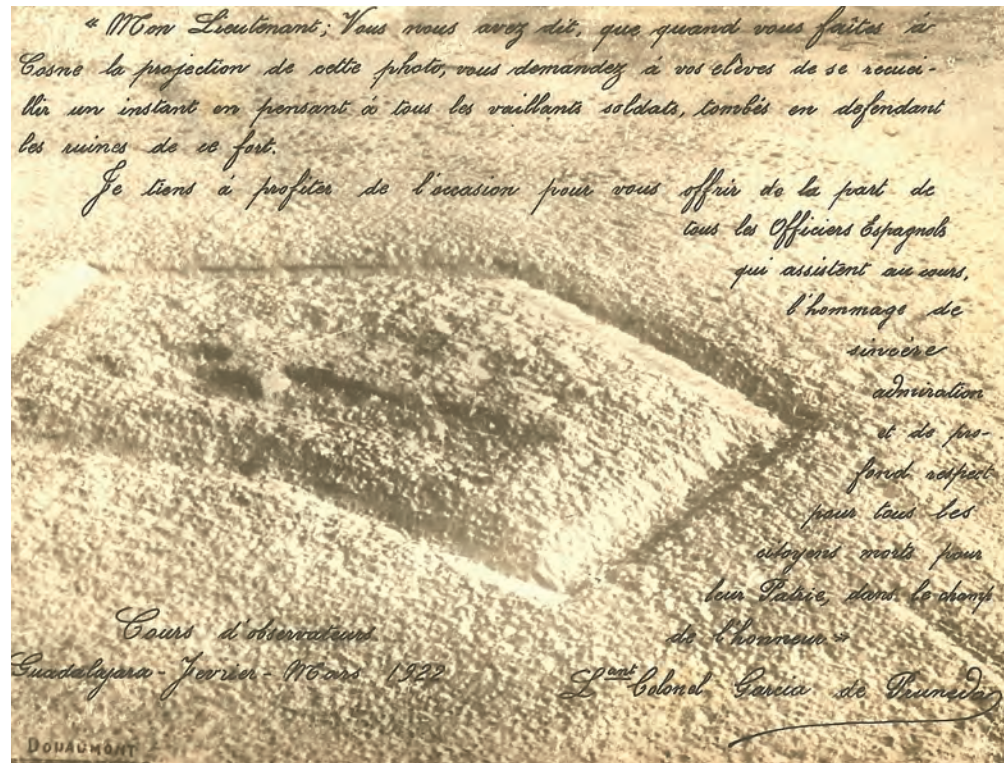 « Mon Lieutenant; Vous nous avez dit, que quand vous faîtes à
Cosne la projection de cette photo, vous demandez à vos elèves de se recuei-
llir un instant en pensant à tous les vaillants soldats, tombés en defendant
les ruines de ce fort.
Je tiens à profiter de l'occasion pour vous offrir de la part de
tous les Officiers Espagnols
qui assistent au cours,
l'hommage de
sincère
admiration
et de pro-
fond respect
pour tous les
citoyens morts pour
leur Patrie, dans le champ
de l'honneur. »
Cours d'observateurs.
Guadalajara - Fevrier - Mars 1922
Lant Colonel Garcia de Pruneda
DOUAUMONT